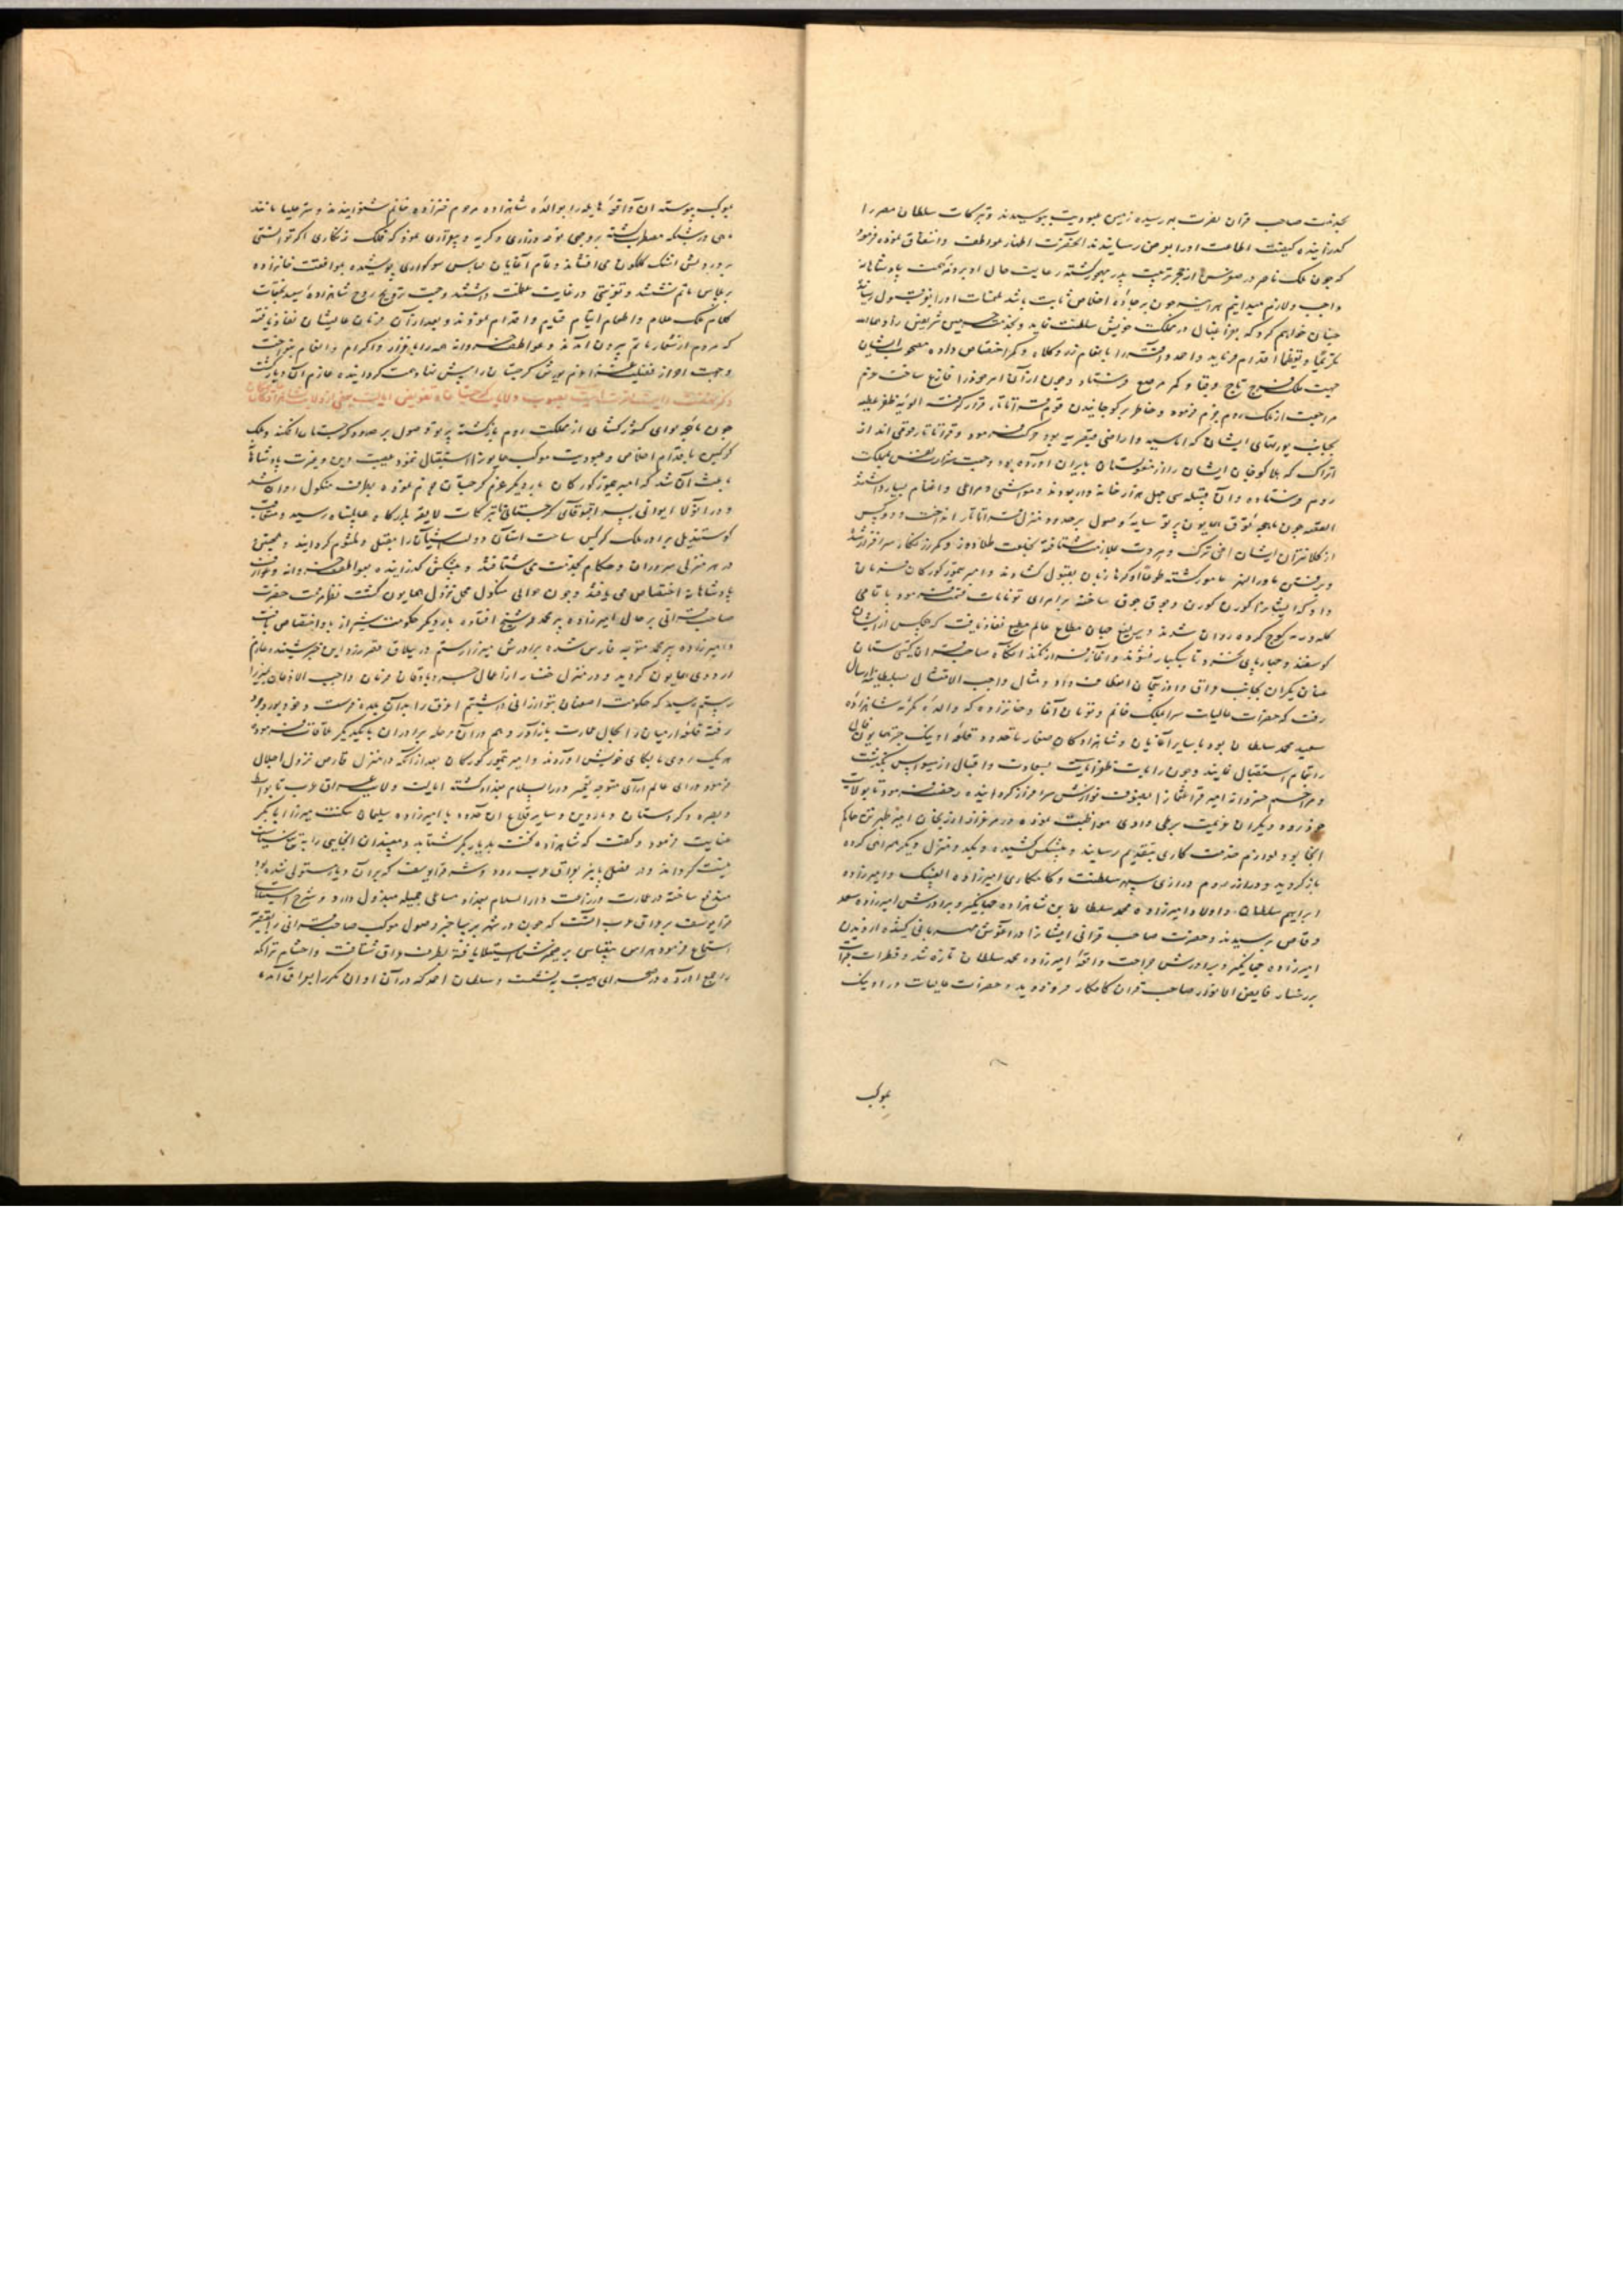 بخدمت صاحب قران نصرت بهر رسیده زمین عبودیت ببوسیدند و تبرکات سلطان مصر را
گذرانیده کیفیت اطاعت او را بعرض رسانیدند آنحضرت اظهار عواطف و اشفاق نموده فرمود
که چون ملک ناصر در صغر سن از حجر تربیت پدر مهجور گشته رعایت حال او بر ذمه همت پادشاهانه
واجب و لازم میدانیم هر آینه چون بر جاده اخلاص ثابت باشد
چنان خواهیم کرد که بفراغبال در مملکت خویش سلطنت نماید و بخدمت حرمین شریفین زادهما الله
تکریما و تعظیما اقدام نماید و احمد و را بانعام زر و کلاه و کمر اختصاص داده مصحوب ایشان
جهت ملک فرج تاج و قبا و کمر مرصع فرستاد و چون از آن امر خود را فارغ ساخت عزم
مراجعت از ملک روم جزم فرموده و خاطر بر کوچانیدن قوم قراتاتار قرار گرفت الویه ظفر عطیه
بجانب یورتهای ایشان که اماسیه و اراضی قیصریه بود حرکت فرمود و قراتاتار قومی اند از
اتراک که هلاکو خان ایشان را از مغولستان بایران آورده بود و جهت بعضی بمملکت
روم فرستاده و آن قبیله سی چهل هزار خانه دار بودند و مواشی و مراعی و اغنام بسیار داشتند
القصه چون ماهچه توق همایون پرتو سایه وصول بر حدود منزل قراتاتار انداخت دو کس
از کلانتران ایشان اخی تبرک و مروت بملازمت شتافته بخلعت طلادوز و کمر زرنگار سرافراز شدند
و برفتن ماوراءالنهر مامور گشته طوعا او کرها زبان بقبول گشادند و امیر تیمور گورکان فرمان
داد که ایشان را کورن کورن و جوق جوق ساخته بر امرای تومانات قسمت فرمود با تمامی
گله و رمه کوچ کرده روان شدند و یرلیغ جهان مطاع عالم مطیع نفاذ یافت که هیچکس از ایشان
گوسفند و چهارپای نخرند تا سبکبار نشوند و آغاز فرار نکنند آنگاه صاحب قران گیتی ستان
عنان یکران بجانب عراق و آذربیجان انعطاف داد و مثال واجب الامتثال بسلطانیه ارسال
رفت که حضرات عالیات سرایملک خانم و تومان آغا و خانزاده که والده مکرمه شاهزاده
سعید محمد سلطان بود با سایر آغایان و شاهزادگان صغار تا حدود قلعه اونیک
را باتمام استقبال نمایند و چون رایات ظفر آیات بسعادت و اقبال از سیواس بگذشت
و مراسم خسروانه امیر قرا عثمان را بصنوف نوازش سرافراز گردانیده رخصت فرمود تا بولایت
خود رود و یکران عزیمت برطی وادی مواظبت نموده در مرغزار ارزنجان امیر طهرتن حاکم
آنجا بود لوازم خدمت کاری بتقدیم رسانید و پیشکش کشیده و یکدو منزل دیگر همراهی کرده
بازگردید و در ارزروم دراری سپهر سلطنت و کامکاری امیرزاده الغبیک و امیرزاده
ابراهیم سلطان و اولاد امیرزاده محمد سلطان بن شاهزاده جهانگیر و برادرش امیرزاده سعد
وقاص برسیدند و حضرت صاحب قرانی ایشان را در آغوش مهربانی کشیده از دیدن
امیرزاده جهانگیر و برادرش جراحت واقعه امیرزاده محمد سلطان تازه شد و قطرات عبرات
بر رخسار فایض الانوار صاحب قران کامکار فرو دوید و حضرات عالیات در اونیک
بموکب
بموکب پیوسته آن واقعه هایله را بوالده شاهزاده مرحوم خانزاده خانم شنوانیدند و ستر علیا مانند
ماهی در شبکه مضطرب گشته بروجهی نوحه و زاری و گریه و بیقراری نمود که فلک زنگاری اگر توانستی
بر درویش اشک گلگون می افشاند و تمام آغایان لباس سوگواری پوشیده بموافقت خانزاده
بر پلاس ماتم نشستند و تعزیتی در غایت عظمت داشتند و جهت ترویح روح شاهزاده سعید بختمات
کلام ملک علام و اطعام ایتام قیام و اقدام نمودند و بعد از آن فرمان عالیشان نفاذ یافت
که مردم از شعار ماتم بیرون آمدند و عواطف خسروانه همه را باعزاز و اکرام و انعام بنواخت
و جهت احراز فضیلت غزا عزم یورش گرجستان را پیش نهاد همت گردانیده عازم آن دیار گشت
ذکر نهضت رایت نصرت آیت بصوب ولایت گرجستان و تفویض ایالت بعضی از ولایت بشاهزادگان
چون ماهچه لوای کشورگشای از مملکت روم بازگشته پرتو وصول بر حدود گرجستان افکند و ملک
گرگین باقدام اخلاص و عبودیت موکب همایون را استقبال ننمود حمیت دین و غیرت پادشاهی
باعث آن شد که امیر تیمور گورکان بار دیگر عزم گرجستان جزم نموده بطرف منکول روان شد
و در اثنا ایوانی پسر آقبوقای گرجستانی با تبرکات لایقه بدرگاه عالمپناه رسید و متعاقب
کوستندیل برادر ملک گرگین ساحت آستان دولت آشیان را مقبل و ملثوم گردانید و همچنین
در هر منزلی سروران و حکام بخدمت می شتافتند و پیشکش گذرانیده بعواطف خسروانه و عوارف
پادشاهانه اختصاص می یافتند و چون حوالی منکول محل نزول همایون گشت نظر مرحمت حضرت
صاحب قرانی بر حال امیرزاده پیر محمد عمر شیخ افتاده بار دیگر حکومت شیراز باو اختصاص یافت
و امیرزاده پیر محمد متوجه فارس شده برادرش میرزا رستم در ییلاق مقرر زده این خبر شنیده عازم
اردوی همایون گردید و در منزل خنسار از اعمال جربادقان فرمان واجب الاذعان بمیرزا
رستم رسید که حکومت اصفهان بتو ارزانی داشتیم اغرق را بدان بلده فرست و خود بوروجرد
رفته قلعه ارمیان را بحال عمارت باز آور و هم در آن مرحله برادران با یکدیگر ملاقات فرموده
هر یک روی بجای خویش آوردند و امیر تیمور گورکان بعد از آنکه در منزل قارص نزول اجلال
فرمود و رای عالم آرای متوجه تعمیر دارالسلام بغداد گشته ایالت ولایت عراق عرب تا واسط
و بصره و کردستان و ماردین و سایر قلاع آن حدود بامیرزاده سلیمان مکنت میرزا ابابکر
عنایت فرمود و گفت که شاهزاده نخست بدیار بکر شتابد و مفسدان آنجایی را به تیغ سیاست
نیست گرداند و در فصل پاییز بعراق عرب رود و شر قرا یوسف که بر آن دیار مستولی شده بود
مندفع ساخته در عمارت و زراعت دارالسلام بغداد مساعی جمیله مبذول دارد و شرح استیلای
قرا یوسف بر عراق عرب آنست که چون در شهر خبر وصول موکب صاحب قرانی را بقیصریه
استماع فرمود هراس بیقیاس بر ضمیرش استیلا یافته بطرف عراق شتافت و احشام تراکمه
را جمع آورده در صحرای هیت بنشست و سلطان احمد که در آن اوان مکررا بعراق آمده